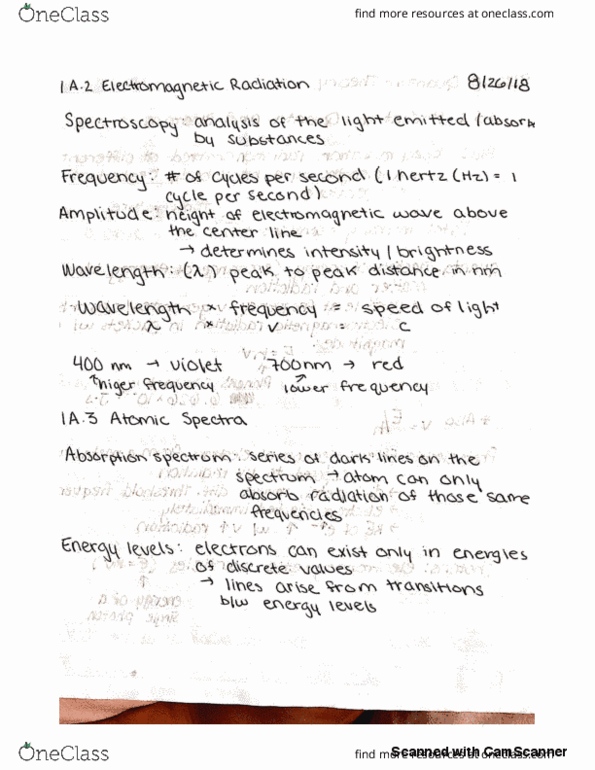 OneClass
find more resources at oneclass.com
1A.2 Electromagnetic Radiation 8/26/18
Spectroscopy analysis of the light emitted / absorb
by substances
Frequency: # of cycles per second (1 hertz (Hz) = 1
cycle per second)
Amplitude: height of electromagnetic wave above
the center line
→ determines intensity / brightness
Wavelength: (λ) peak to peak distance in nm
Wavelength × frequency = speed of light
λ × v = c
400 nm → violet 700nm → red
↑ higer frequency ↑ lower frequency
1A.3 Atomic Spectra
Absorption spectrum: series of dark lines on the
spectrum → atom can only
absorb radiation of those same
frequencies
Energy levels: electrons can exist only in energies
of discrete values
→ lines arise from transitions
b/w energy levels
OneClass
find more resources at oneclass.com
Scanned with CamScanner